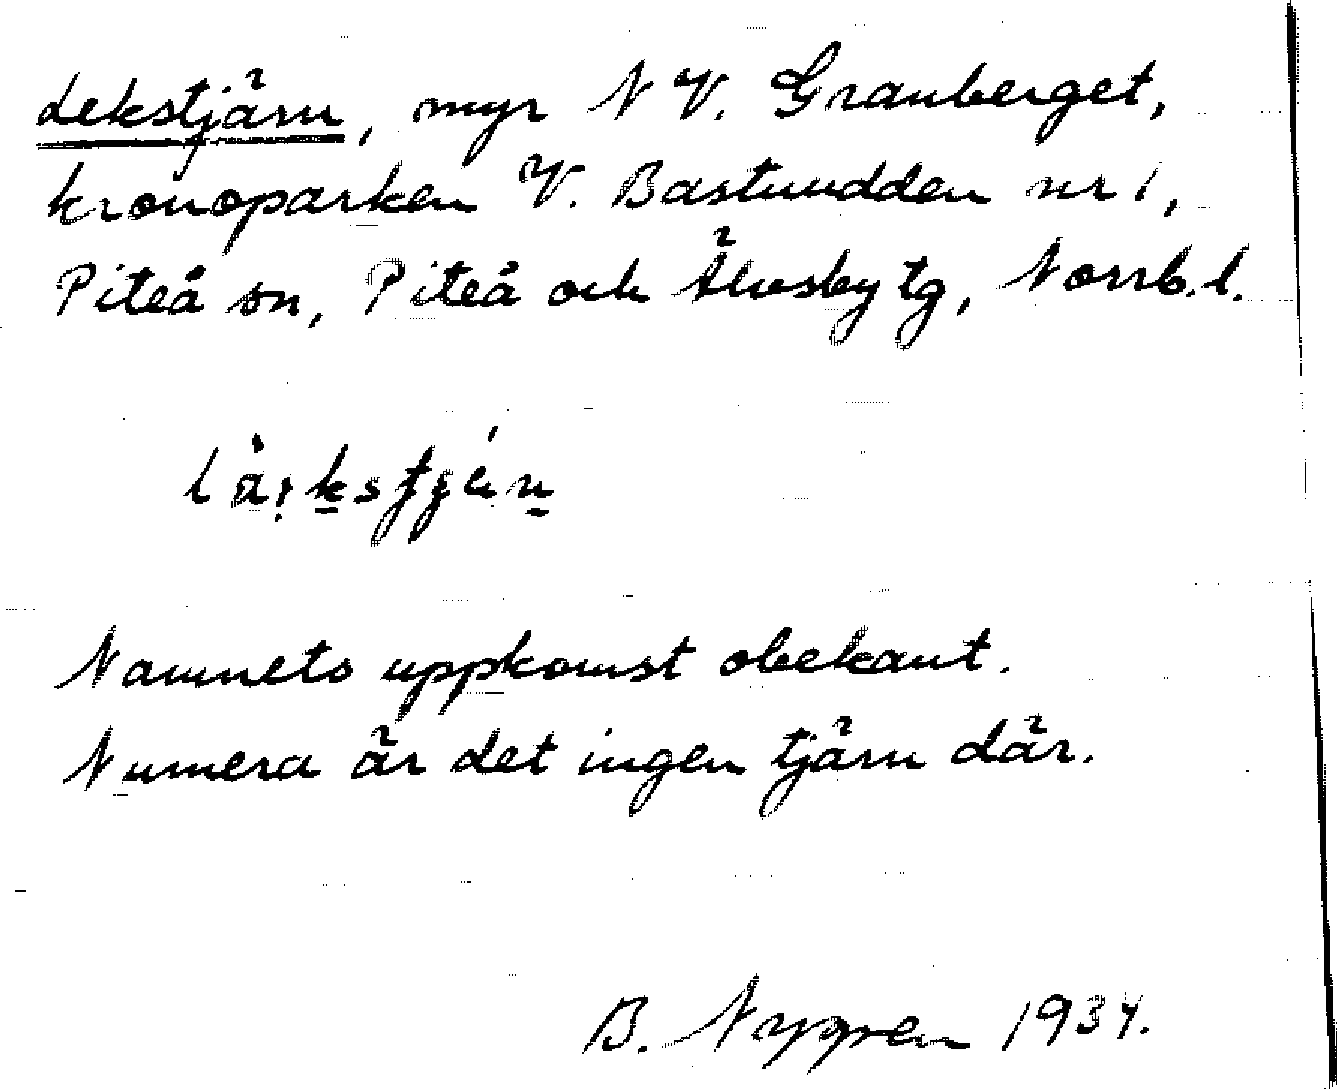 Lekstjärn, myr N V. Granberget,
kronoparken V. Bastuudden nr 1,
Piteå sn, Piteå och Älvsby tg, Norrb. l.
Namnets uppkomst obekant.
Numera är det ingen tjärn där.
B. Nygren 1934.